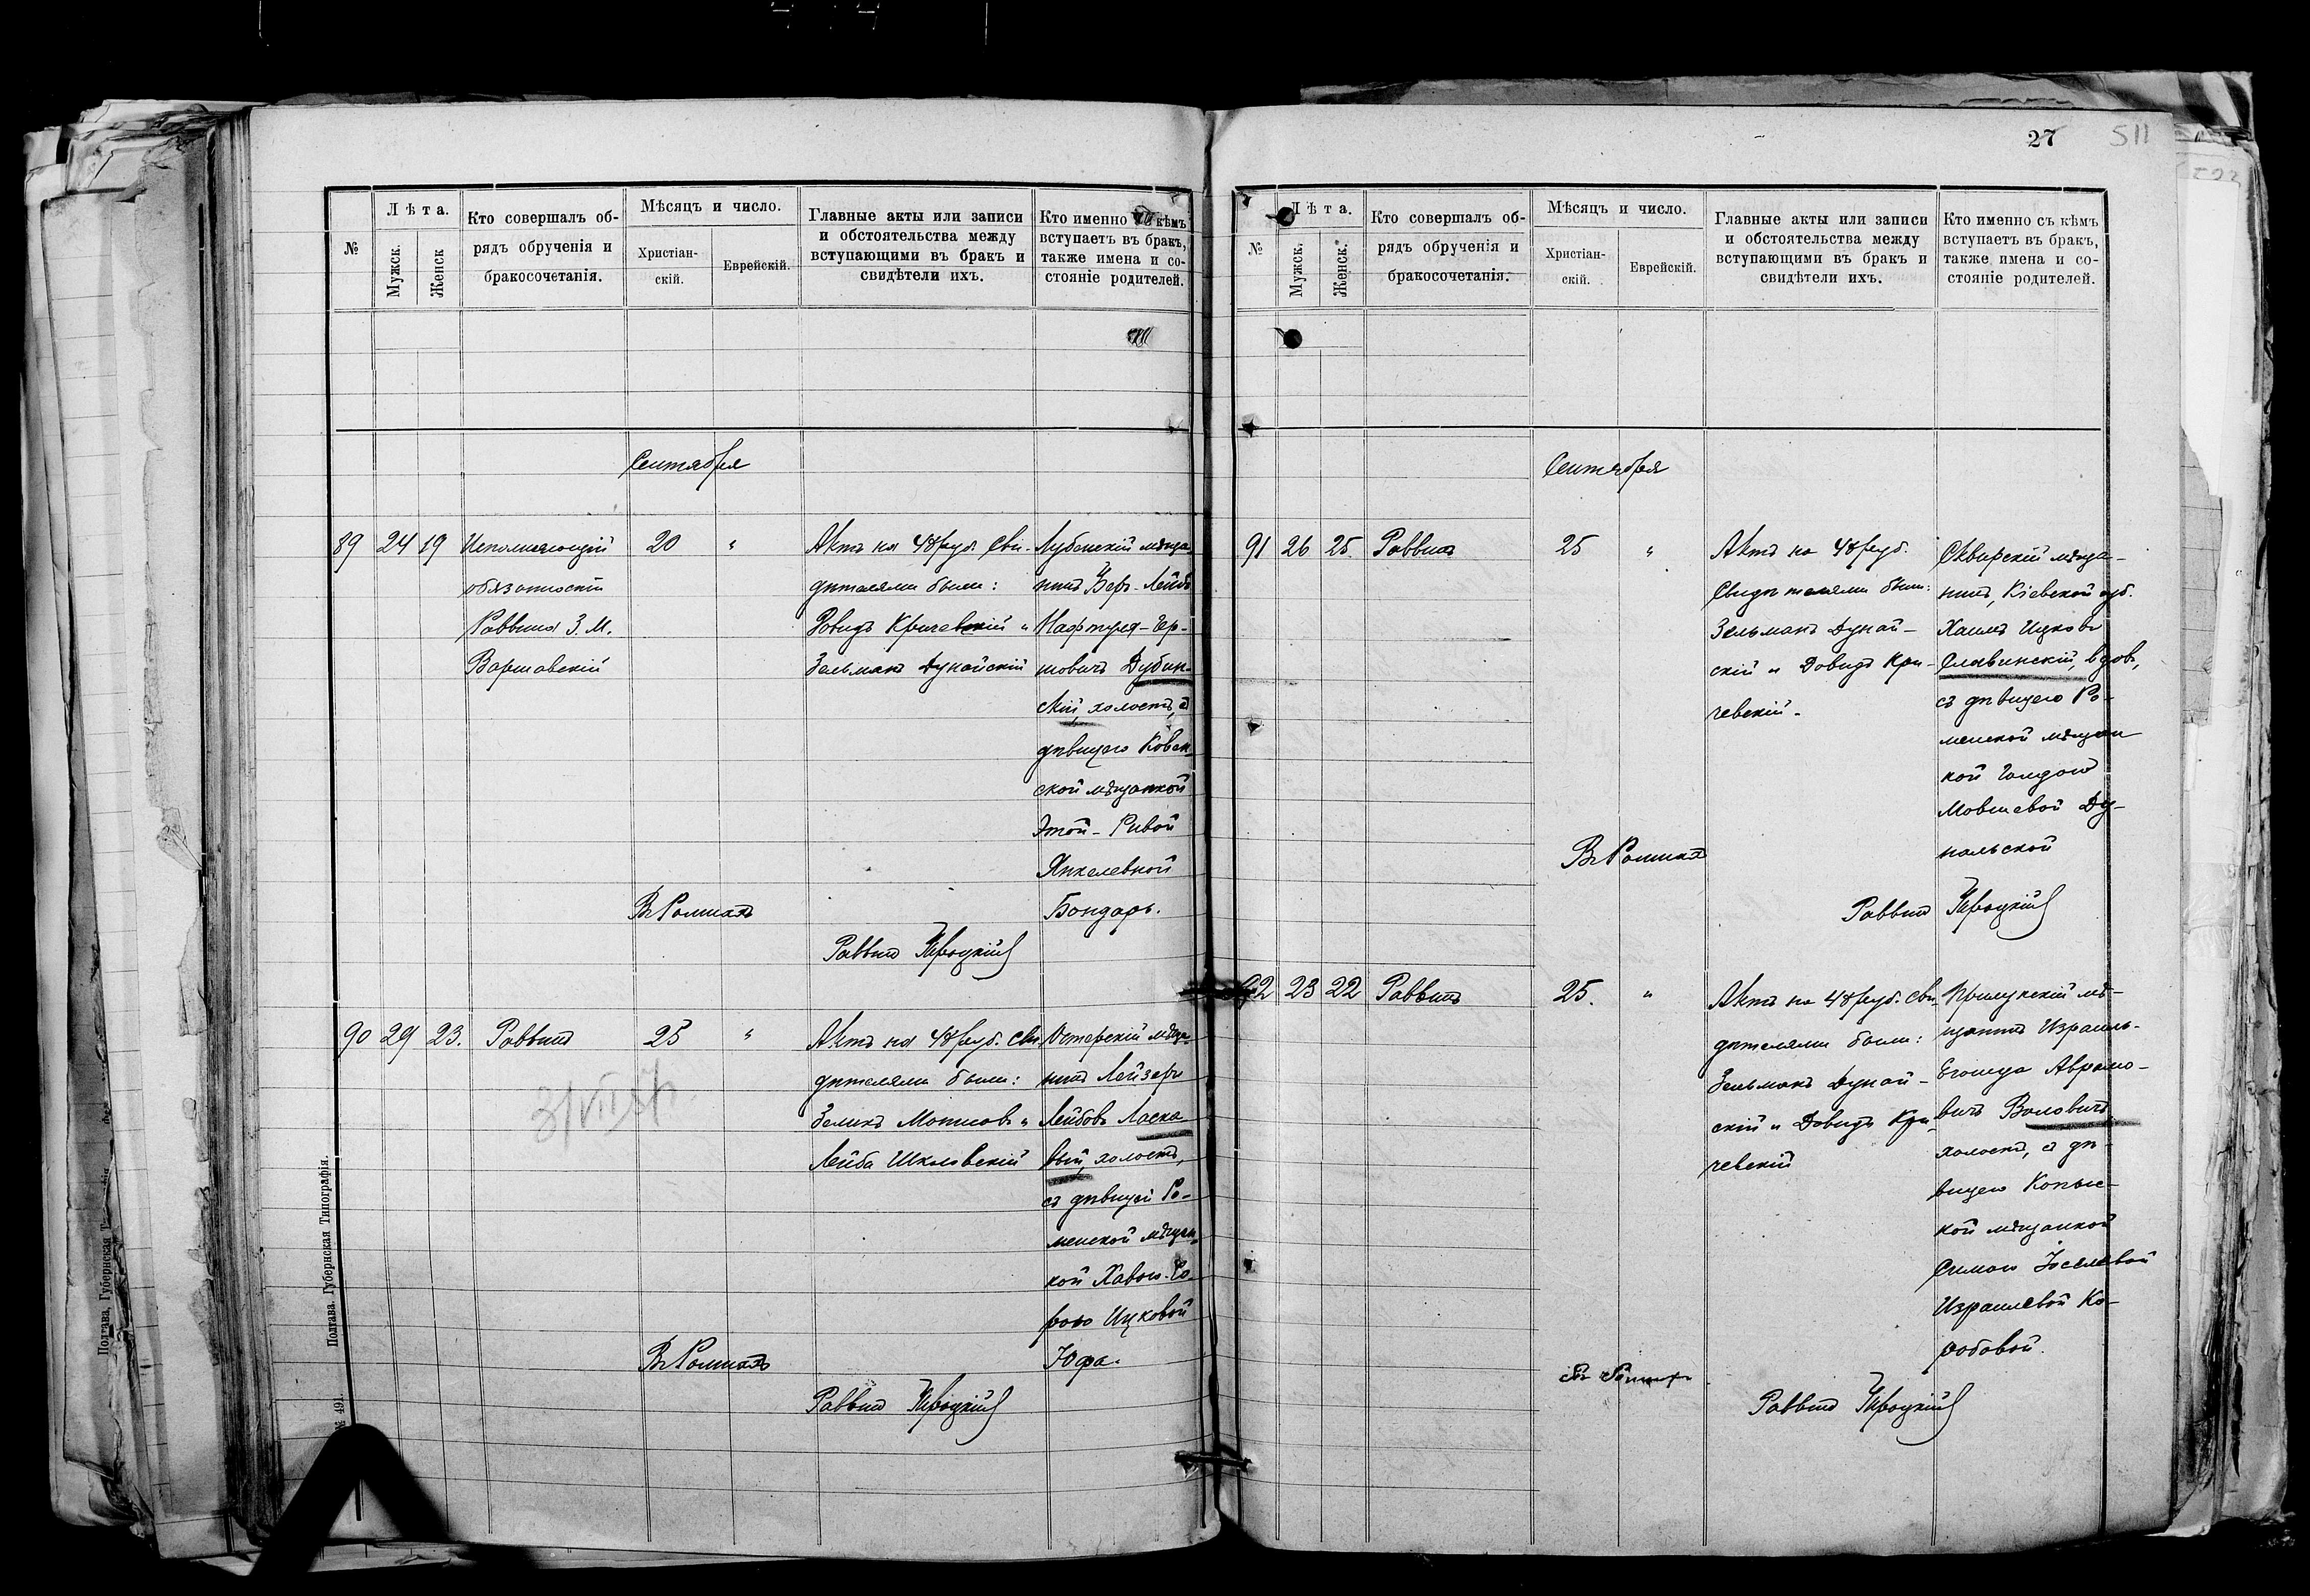 27
511
№
Лѣта.
Мужск.
Женск
Кто совершалъ об-
рядъ обрученія и
бракосочетанія.
Мѣсяцъ и число.
Христіан-
скій.
Еврейскій.
Главные акты или записи
и обстоятельства между
вступающими въ бракъ и
свидѣтели ихъ.
Кто именно съ кѣмъ
вступаетъ въ бракъ,
также имена и со-
стояніе родителей.
Сентября
89 24 19
Исполняющій
обязанности
Раввина З. М.
Варшавскій
20 "
Актъ на 48 руб. Сви-
дѣтелями были:
Довидъ Кричевскій и
Зельманъ Дунайскій
Лубенскій мѣща
нинъ Беръ-Лейбъ
Нафтула-Гер-
шовичъ Дубин-
скій, холостъ, съ
дѣвицею Ковен-
ской мѣщанкой
Этой-Ривой
Янкелевной
Бондарь.
Въ Ромнахъ
Раввинъ
90 29 23.
Раввинъ
25 "
Актъ на 48 руб. Сви-
дѣтелями были:
Зеликъ и
Лейба Шкловскій
Остерскій мѣща-
нинъ Лейзеръ
Лейбовъ Ласко-
вый, холостъ,
съ дѣвицей Ро-
менской мѣщан-
кой Хавою-Са-
рою Ицковой
Юфа.
Въ Ромнахъ
Раввинъ
Полтава. Губернская Типографія.
№ 491.
Полтава, Губернская Т
№
Лѣта.
Мужск.
Женск.
Кто совершалъ об-
рядъ обрученія и
бракосочетанія.
Мѣсяцъ и число.
Христіан-
скій.
Еврейскій.
Главные акты или записи
и обстоятельства между
вступающими въ бракъ и
свидѣтели ихъ.
Кто именно съ кѣмъ
вступаетъ въ бракъ,
также имена и со-
стояніе родителей.
Сентября
91 26 25.
Раввинъ
25 "
Актъ на 48 руб.
Свидѣтелями были:
Зельманъ Дунай-
скій и Довидъ Кри-
чевскій.
Сквирскій мѣща-
нинъ, Кіевской губ.
Хаимъ Ицковъ
Славинскій, вдов.,
съ дѣвицею Ро-
менской мѣщан
кой Голдою
Мовшевой Ду-
нальской
Въ Ромнахъ
Раввинъ
92 23 22
Раввинъ
25. "
Актъ на 48 руб. Сви-
дѣтелями были:
Зельманъ Дунай-
скій и Довидъ Кри-
чевскій
Прилукскій мѣ-
щанинъ Израиль-
Егошуа Аврамо-
вичъ Воловичъ
холостъ, съ дѣ-
вицею Копыс-
кой мѣщанкой
Симою Іоселевой
Израилевой Ко-
робовой.
Въ Ромнахъ
Раввинъ